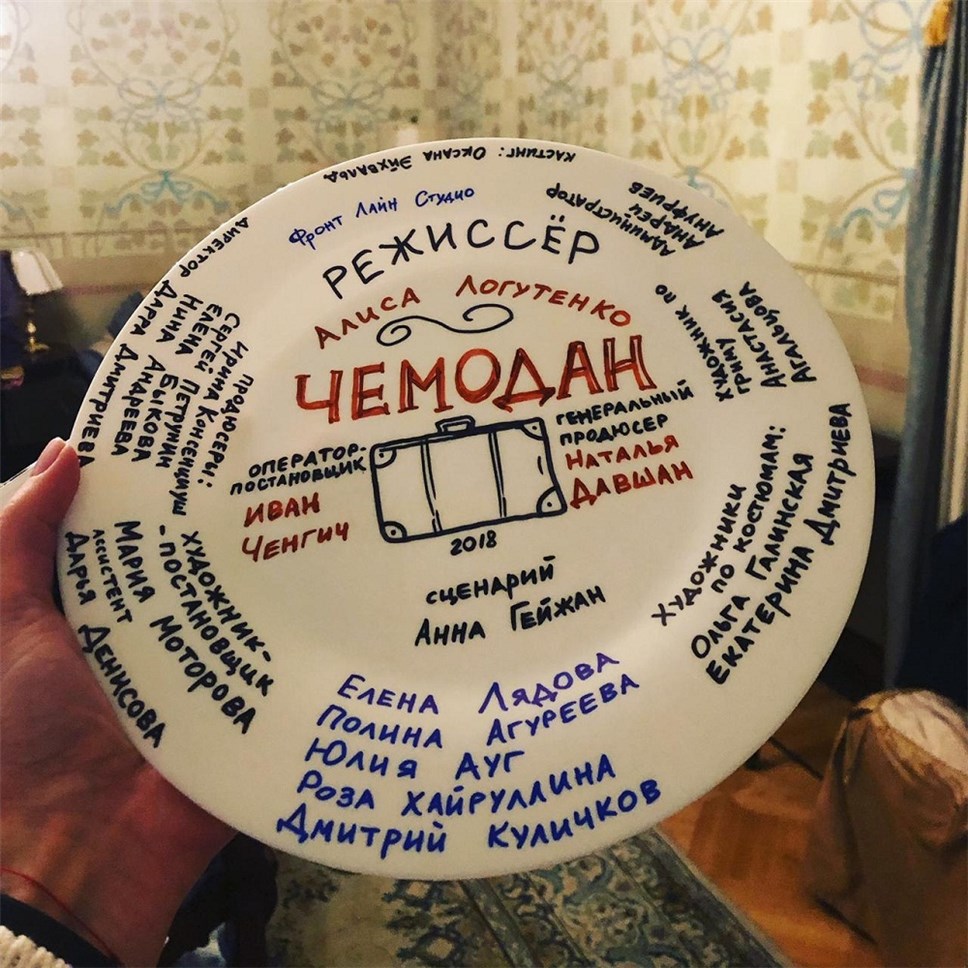 кастинг: Оксана Эйхвальд
Фронт Лайн Студио
РЕЖИССЁР
АЛИСА ЛОГУТЕНКО
ЧЕМОДАН
ОПЕРАТОР-
ПОСТАНОВЩИК
ИВАН
ЧЕНГИЧ
ГЕНЕРАЛЬНЫЙ
ПРОДЮСЕР
НАТАЛЬЯ
ДАВШАН
2018
СЦЕНАРИЙ
АННА ГЕЙЖАН
ЕЛЕНА ЛЯДОВА
ПОЛИНА АГУРЕЕВА
ЮЛИЯ АУГ
РОЗА ХАЙРУЛЛИНА
ДМИТРИЙ КУЛИЧКОВ
АДМИНИСТРАТОР
АНДРЕЙ
АНУФРИЕВ
ХУДОЖНИК ПО
ГРИМУ
АНАСТАСИЯ
АГАЛЬЦОВА
ХУДОЖНИКИ
ПО КОСТЮМАМ:
ОЛЬГА ГАЛИНСКАЯ
ЕКАТЕРИНА ДМИТРИЕВА
ХУДОЖНИК-
-ПОСТАНОВЩИК
МАРИЯ МОТОРОВА
АССИСТЕНТ
ДАРЬЯ ДЕНИСОВА
ПРОДЮСЕРЫ:
ИРИНА
СЕРГЕЙ ПЕТРУНИН
ЕЛЕНА БЫКОВА
НИНА АНДРЕЕВА
ДИРЕКТОР
ДАРРА ДМИТРИЕВА